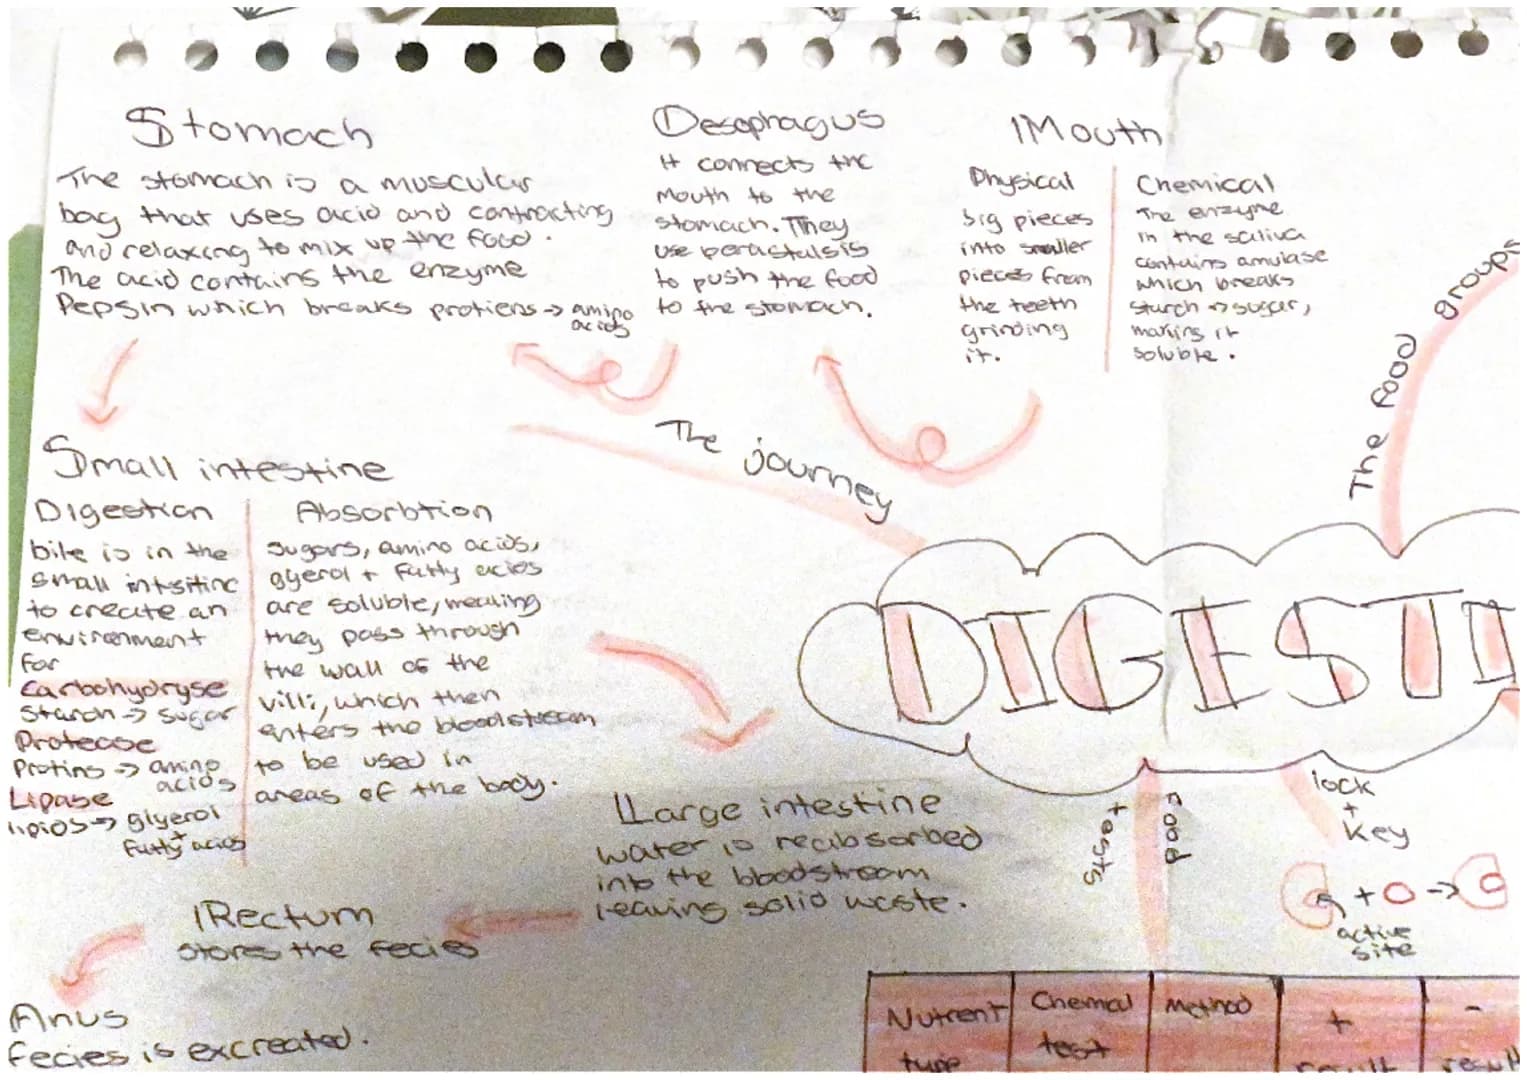 Stomach
The stomach is a muscular
bag that uses acid and contracting
and relaxing to mix up the food.
The acid contains the enzyme
Pepsin which breaks protiens → amino
acids
Oesophagus
It connects the
mouth to the
stomach. They
use perastalsis
to push the food
to the stomach.
Mouth
Physical
big pieces
into smaller
pieces from
the teeth
grinding
it.
Chemical
The enzyme
in the saliva
contains amulase
which breaks
starch → sugar,
making it
soluble.
The food groups
The journey
Small intestine
Digestion
bile is in the
small intsitine
to create an
environment
for
Carbohydryse
starch → sugar
Protease
Protins → amino
acids
Lipase
lipids → glyerol
+
fatty acids
Absorbtion
sugars, amino acids,
glyerol + fatty acids
are soluble, meaning
they pass through
the wall of the
villi, which then
enters the bloodstream
to be used in
areas of the body.
DIGESTI
Large intestine
water is reabsorbed
into the bloodstream
leaving solid waste.
Rectum
stores the fecies
Anus
fecies is excreated.
Food
tests
lock
+
key
+ → 
active
site
Nutrent
type
Chemical
test
Method
+
result
-
result